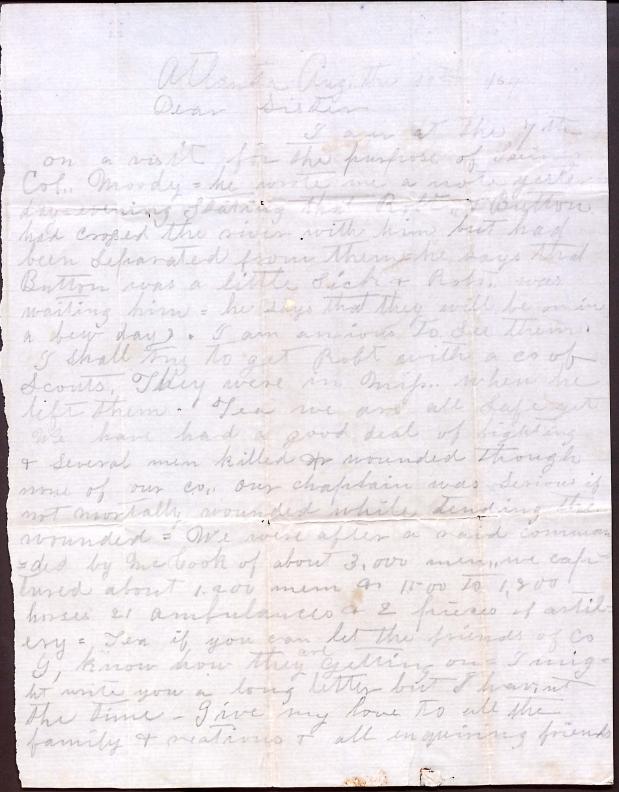 Atlanta Aug. the 10th 1864
Dear Sister
I am at the 7th
on a visit for the purpose of seeing
Col. Moody = he wrote me a note yester
day evening Stating that Robt & Button
had crosed the river with him but had
been Separated from them he says that
Button was a little Sick & Robt. was
waiting him = he says that they will be in in
a few days. I am anxious to See them.
I Shall try to get Robt with a co of
Scouts. They were in Miss. when he
left them. Tea we are all Safe yet
We have had a good deal of fighting
& Several men killed & wounded though
none of our co. our chaplain was Serious if
not mortally wounded while tending the
wounded = We were after a raid comman
=ded by McCook of about 3,000 men, we cap-
tured about 1.200 men & 1500 to 1,800
horses 21 ambulances & 2 pieces of artil-
ery = Tea if you can let the friends of Co
G, know how they are getting on = I mig-
ht write you a long letter but I havint
the time - Give my love to all the
family & relations & all enquiring friends